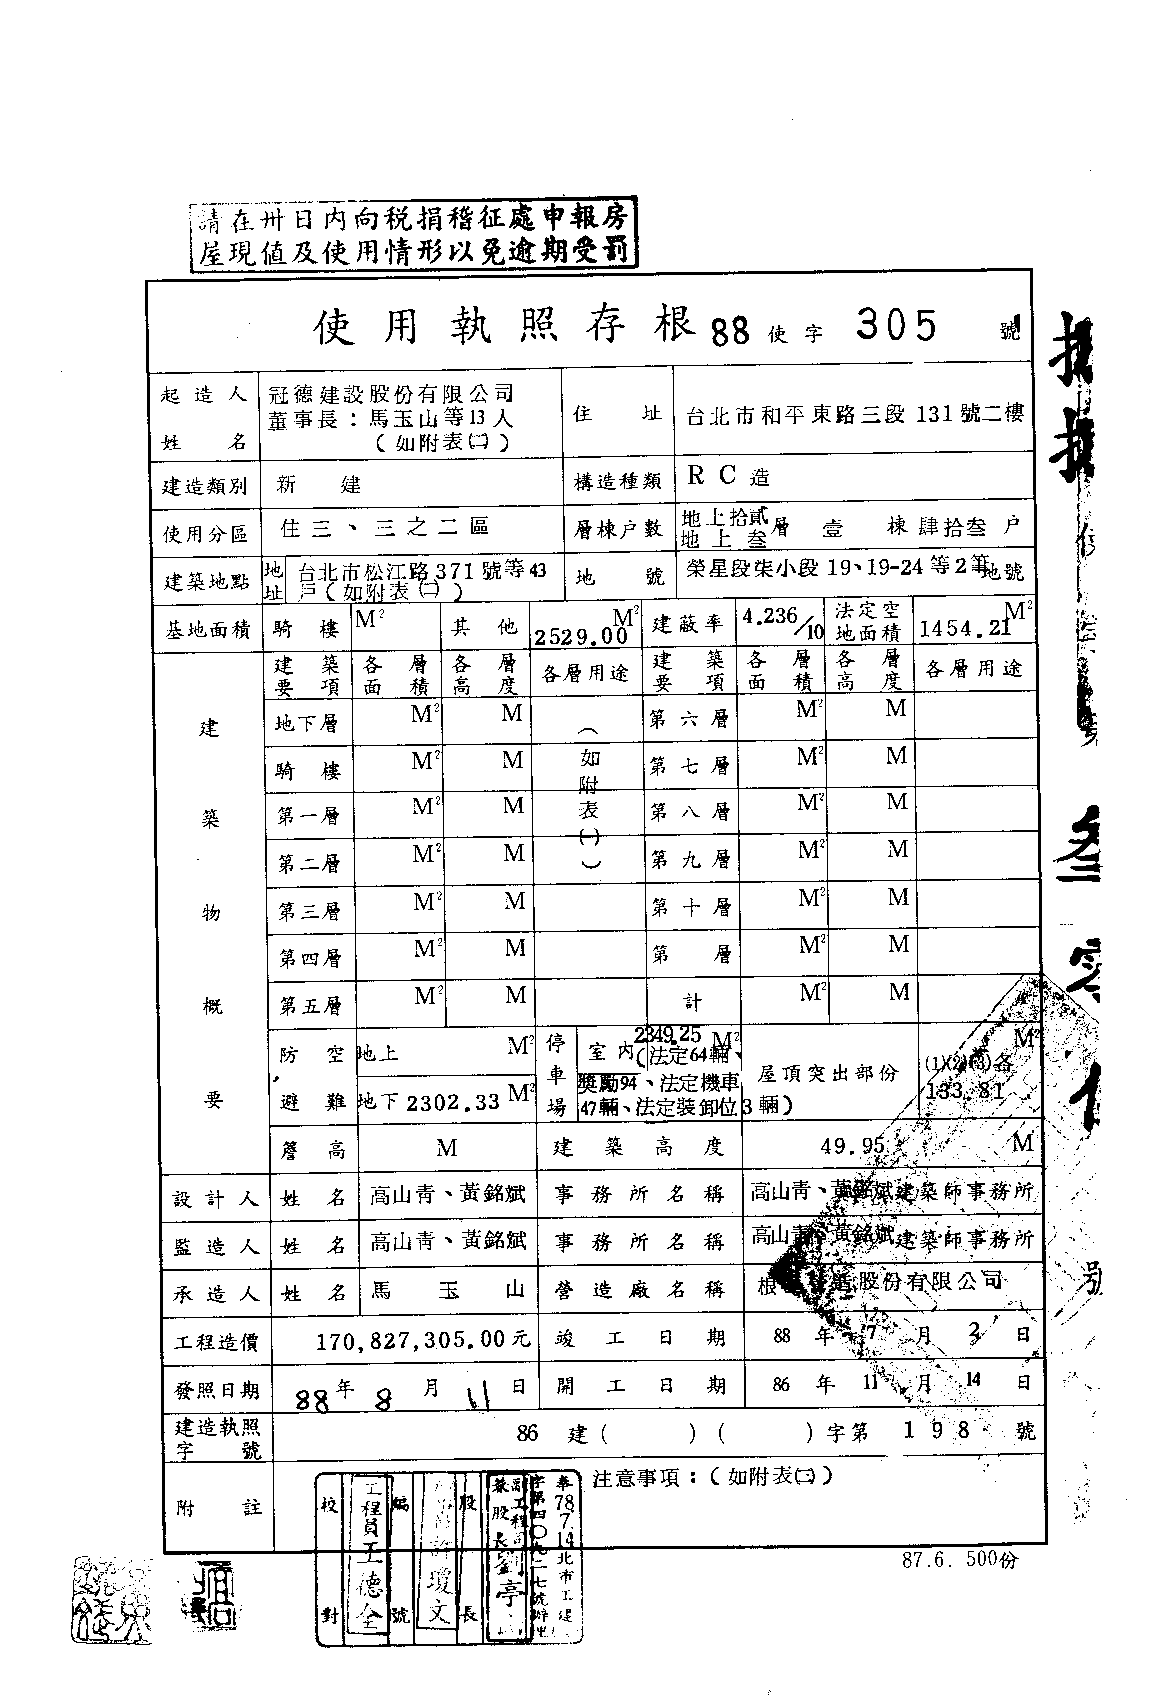 請在卅日內向稅捐稽征處申報房
屋現值及使用情形以免逾期受罰
使用執照存根 88 使字 305 號
起造人姓名 冠德建設股份有限公司
董事長：馬玉山等13人
（如附表㈡）
住址 台北市和平東路三段131號二樓
建造類別 新建 構造種類 RC造
使用分區 住三、三之二區 層棟戶數 地上拾貳層 壹棟 肆拾叁戶
地上叁
建築地點 地址 台北市松江路371號等43
戶（如附表㈡）
地號 榮星段柒小段19、19-24等2筆地號
基地面積 騎樓 M² 其他 2529.00 M² 建蔽率 4.236/10 法定空地面積 1454.21 M²
建築物概要
建築要項 各層面積 各層高度 各層用途 建築要項 各層面積 各層高度 各層用途
地下層 M² M 第六層 M² M
騎樓 M² M 第七層 M² M
第一層 M² M 第八層 M² M
第二層 M² M 第九層 M² M
第三層 M² M 第十層 M² M
第四層 M² M 第 層 M² M
第五層 M² M 計 M² M
（如附表㈠）
防空避難 地上 M²
地下 2302.33 M²
停車場 室內 2349.25 M²
（法定64輛、
獎勵94、法定機車
47輛、法定裝卸位3輛）
屋頂突出部份 M²
(1)(2)(3)各
133.81
簷高 M 建築高度 49.95 M
設計人 姓名 高山青、黃銘斌 事務所名稱 高山青、黃銘斌建築師事務所
監造人 姓名 高山青、黃銘斌 事務所名稱 高山青、黃銘斌建築師事務所
承造人 姓名 馬玉山 營造廠名稱 根 造股份有限公司
工程造價 170,827,305.00元 竣工日期 88年7月2日
發照日期 88年8月11日 開工日期 86年11月14日
建造執照字號 86建( )( )字第198號
附註 注意事項：（如附表㈡）
校對 工程員王德全
編號
股長
87.6. 500份
叁
零
號